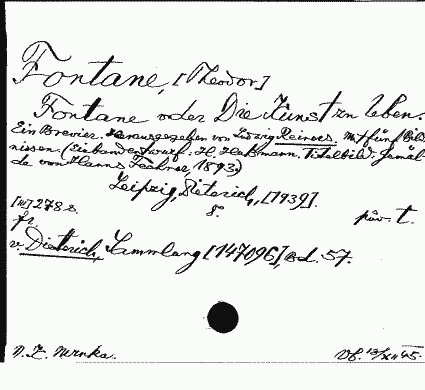 Fontane, [Theodor]
Fontane oder Die Kunst zu leben.
Ein Brevier. Herausgegeben von Ludwig Reiners. Mit fünf Bild-
nissen. (Einbandentwurf: H. Titelbild: Gemäl-
de von Hanns Fechner, 1893.)
Leipzig, Dieterich, [1939].
[IV] 278 S. 8°.
fr. t.
v. Dieterich, Sammlung [147096], Bd. 57.
13/XII 45.